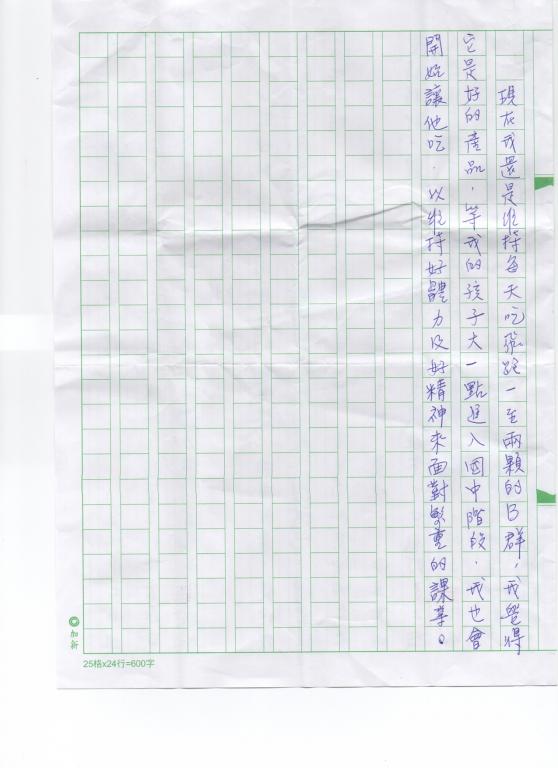 現在我還是維持每天吃張錠一至兩顆的B群,我覺得
它是好的產品,等我的孩子大一點進入國中階段,我也會
開始讓他吃,以維持好體力及好精神來面對繁重的課業。
加新
25格x24行=600字